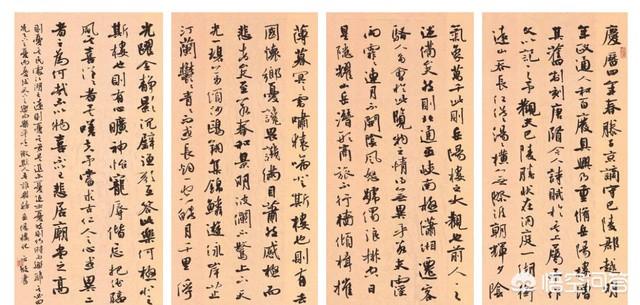 慶曆四年春滕子京謫守巴陵郡越明
年政通人和百廢具興乃重修岳陽樓增
其舊制刻唐賢今人詩賦於其上屬予作
文以記之予觀夫巴陵勝狀在洞庭一湖銜
遠山吞長江浩浩湯湯橫無際涯朝暉夕陰
氣象萬千此則岳陽樓之大觀也前人之
述備矣然則北通巫峽南極瀟湘遷客
騷人多會於此覽物之情得無異乎若夫
霪雨霏霏連月不開陰風怒號濁浪排空日
星隱耀山岳潛形商旅不行檣傾楫摧
薄暮冥冥虎嘯猿啼登斯樓也則有去
國懷鄉憂讒畏譏滿目蕭然感極而
悲者矣至若春和景明波瀾不驚上下天
光一碧萬頃沙鷗翔集錦鱗游泳岸芷
汀蘭鬱鬱青青而或長煙一空皓月千里浮
光躍金靜影沉璧漁歌互答此樂何極登
斯樓也則有心曠神怡寵辱偕忘把酒臨
風其喜洋洋者矣嗟夫予嘗求古仁人之心或異二
者之為何哉不以物喜不以己悲居廟堂之高
則憂其民處江湖之遠則憂其君是進亦憂退亦憂然則何時而樂耶其必曰
先天下之憂而憂後天下之樂而樂乎噫微斯人吾誰與歸
悟空问答